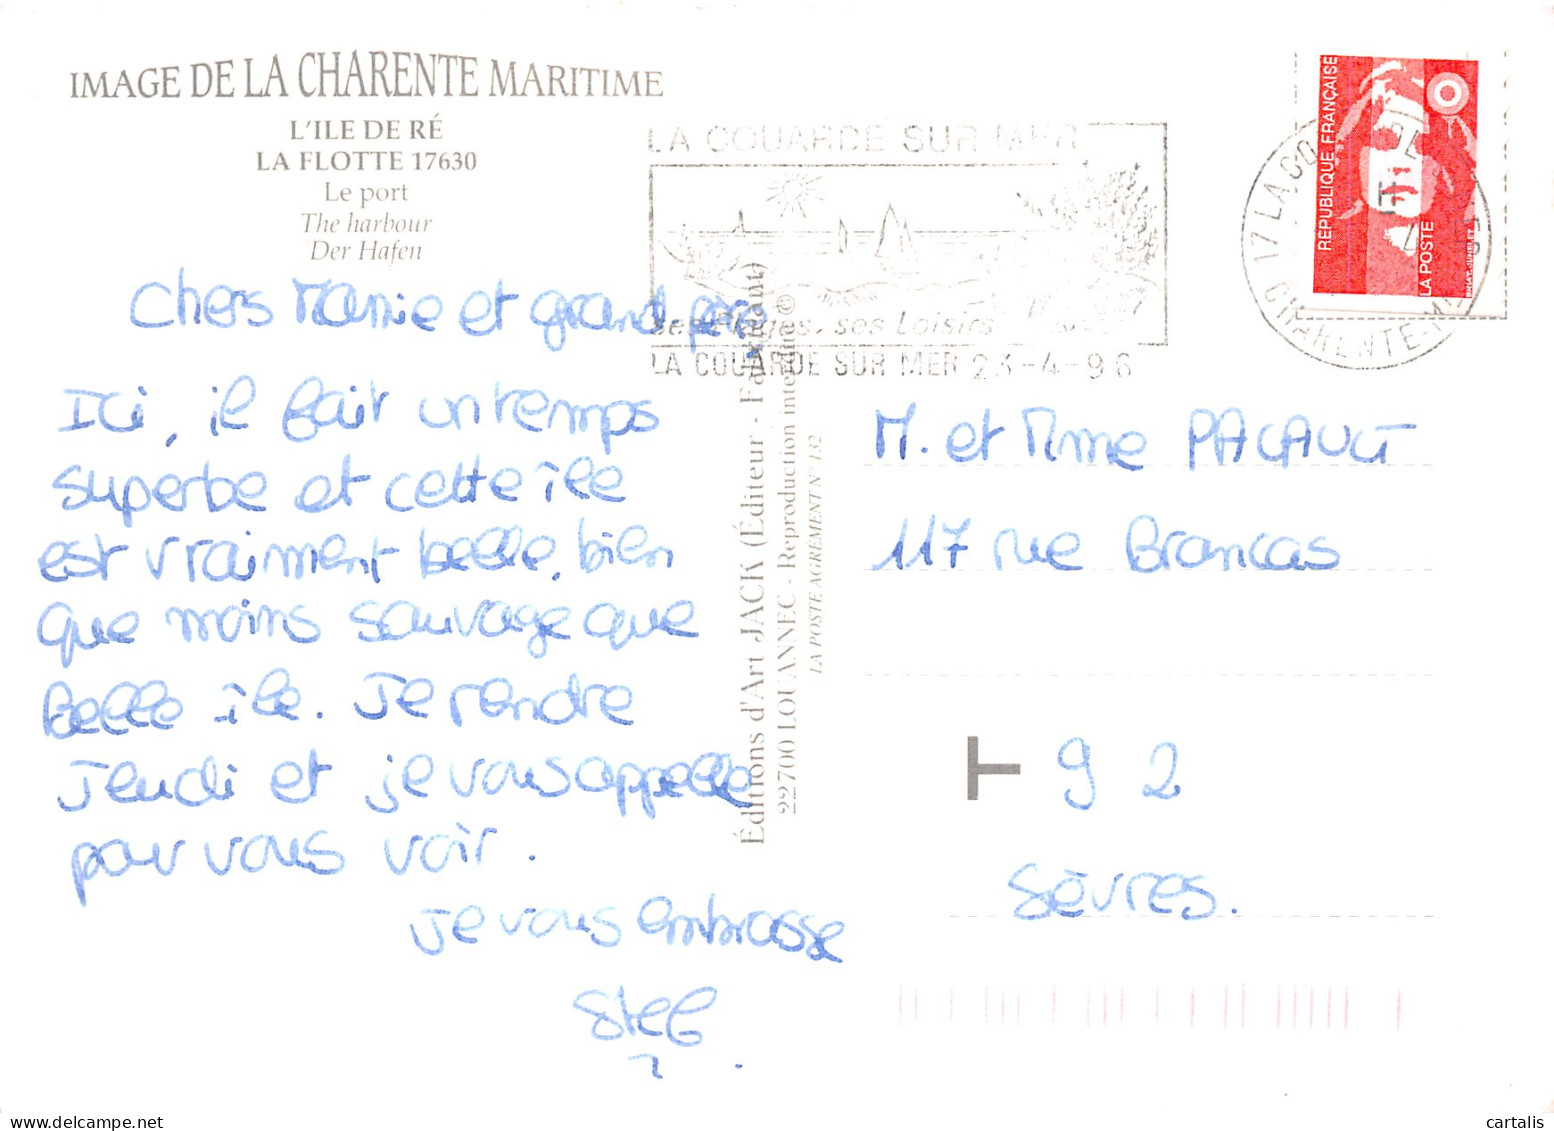 IMAGE DE LA CHARENTE MARITIME
L'ILE DE RÉ
LA FLOTTE 17630
Le port
The harbour
Der Hafen
Chers Mamie et grand père,
Ici, il fait un temps
superbe et cette île
est vraiment belle, bien
que moins sauvage que
belle île. Je rentre
Jeudi et je vous appelle
pour vous voir.
Je vous embrasse
Stef
Éditions d'Art JACK (Éditeur - Fabricant)
22700 LOUANNEC - Reproduction interdite ©
LA POSTE AGREMENT N° 132
LA COUARDE SUR MER
ses Plages, ses Loisirs
LA COUARDE SUR MER 23-4-96
RÉPUBLIQUE FRANÇAISE
LA POSTE
17 LA CO
CHARENTE-M
M. et Mme PACAULT
117 rue Brancas
T 92
Sèvres.
cartalis